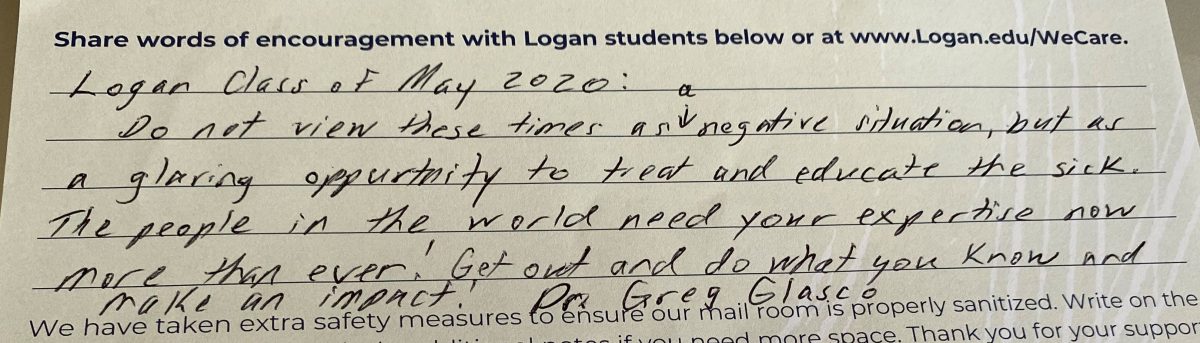 Share words of encouragement with Logan students below or at www.Logan.edu/WeCare.
Logan Class of May 2020:
a
Do not view these times as negative situation, but as
a glaring oppurtnity to treat and educate the sick.
The people in the world need your expertise now
more than ever! Get out and do what you know and
make an impact! Dr. Greg Glasco
We have taken extra safety measures to ensure our mail room is properly sanitized. Write on the
notes if you need more space. Thank you for your suppor